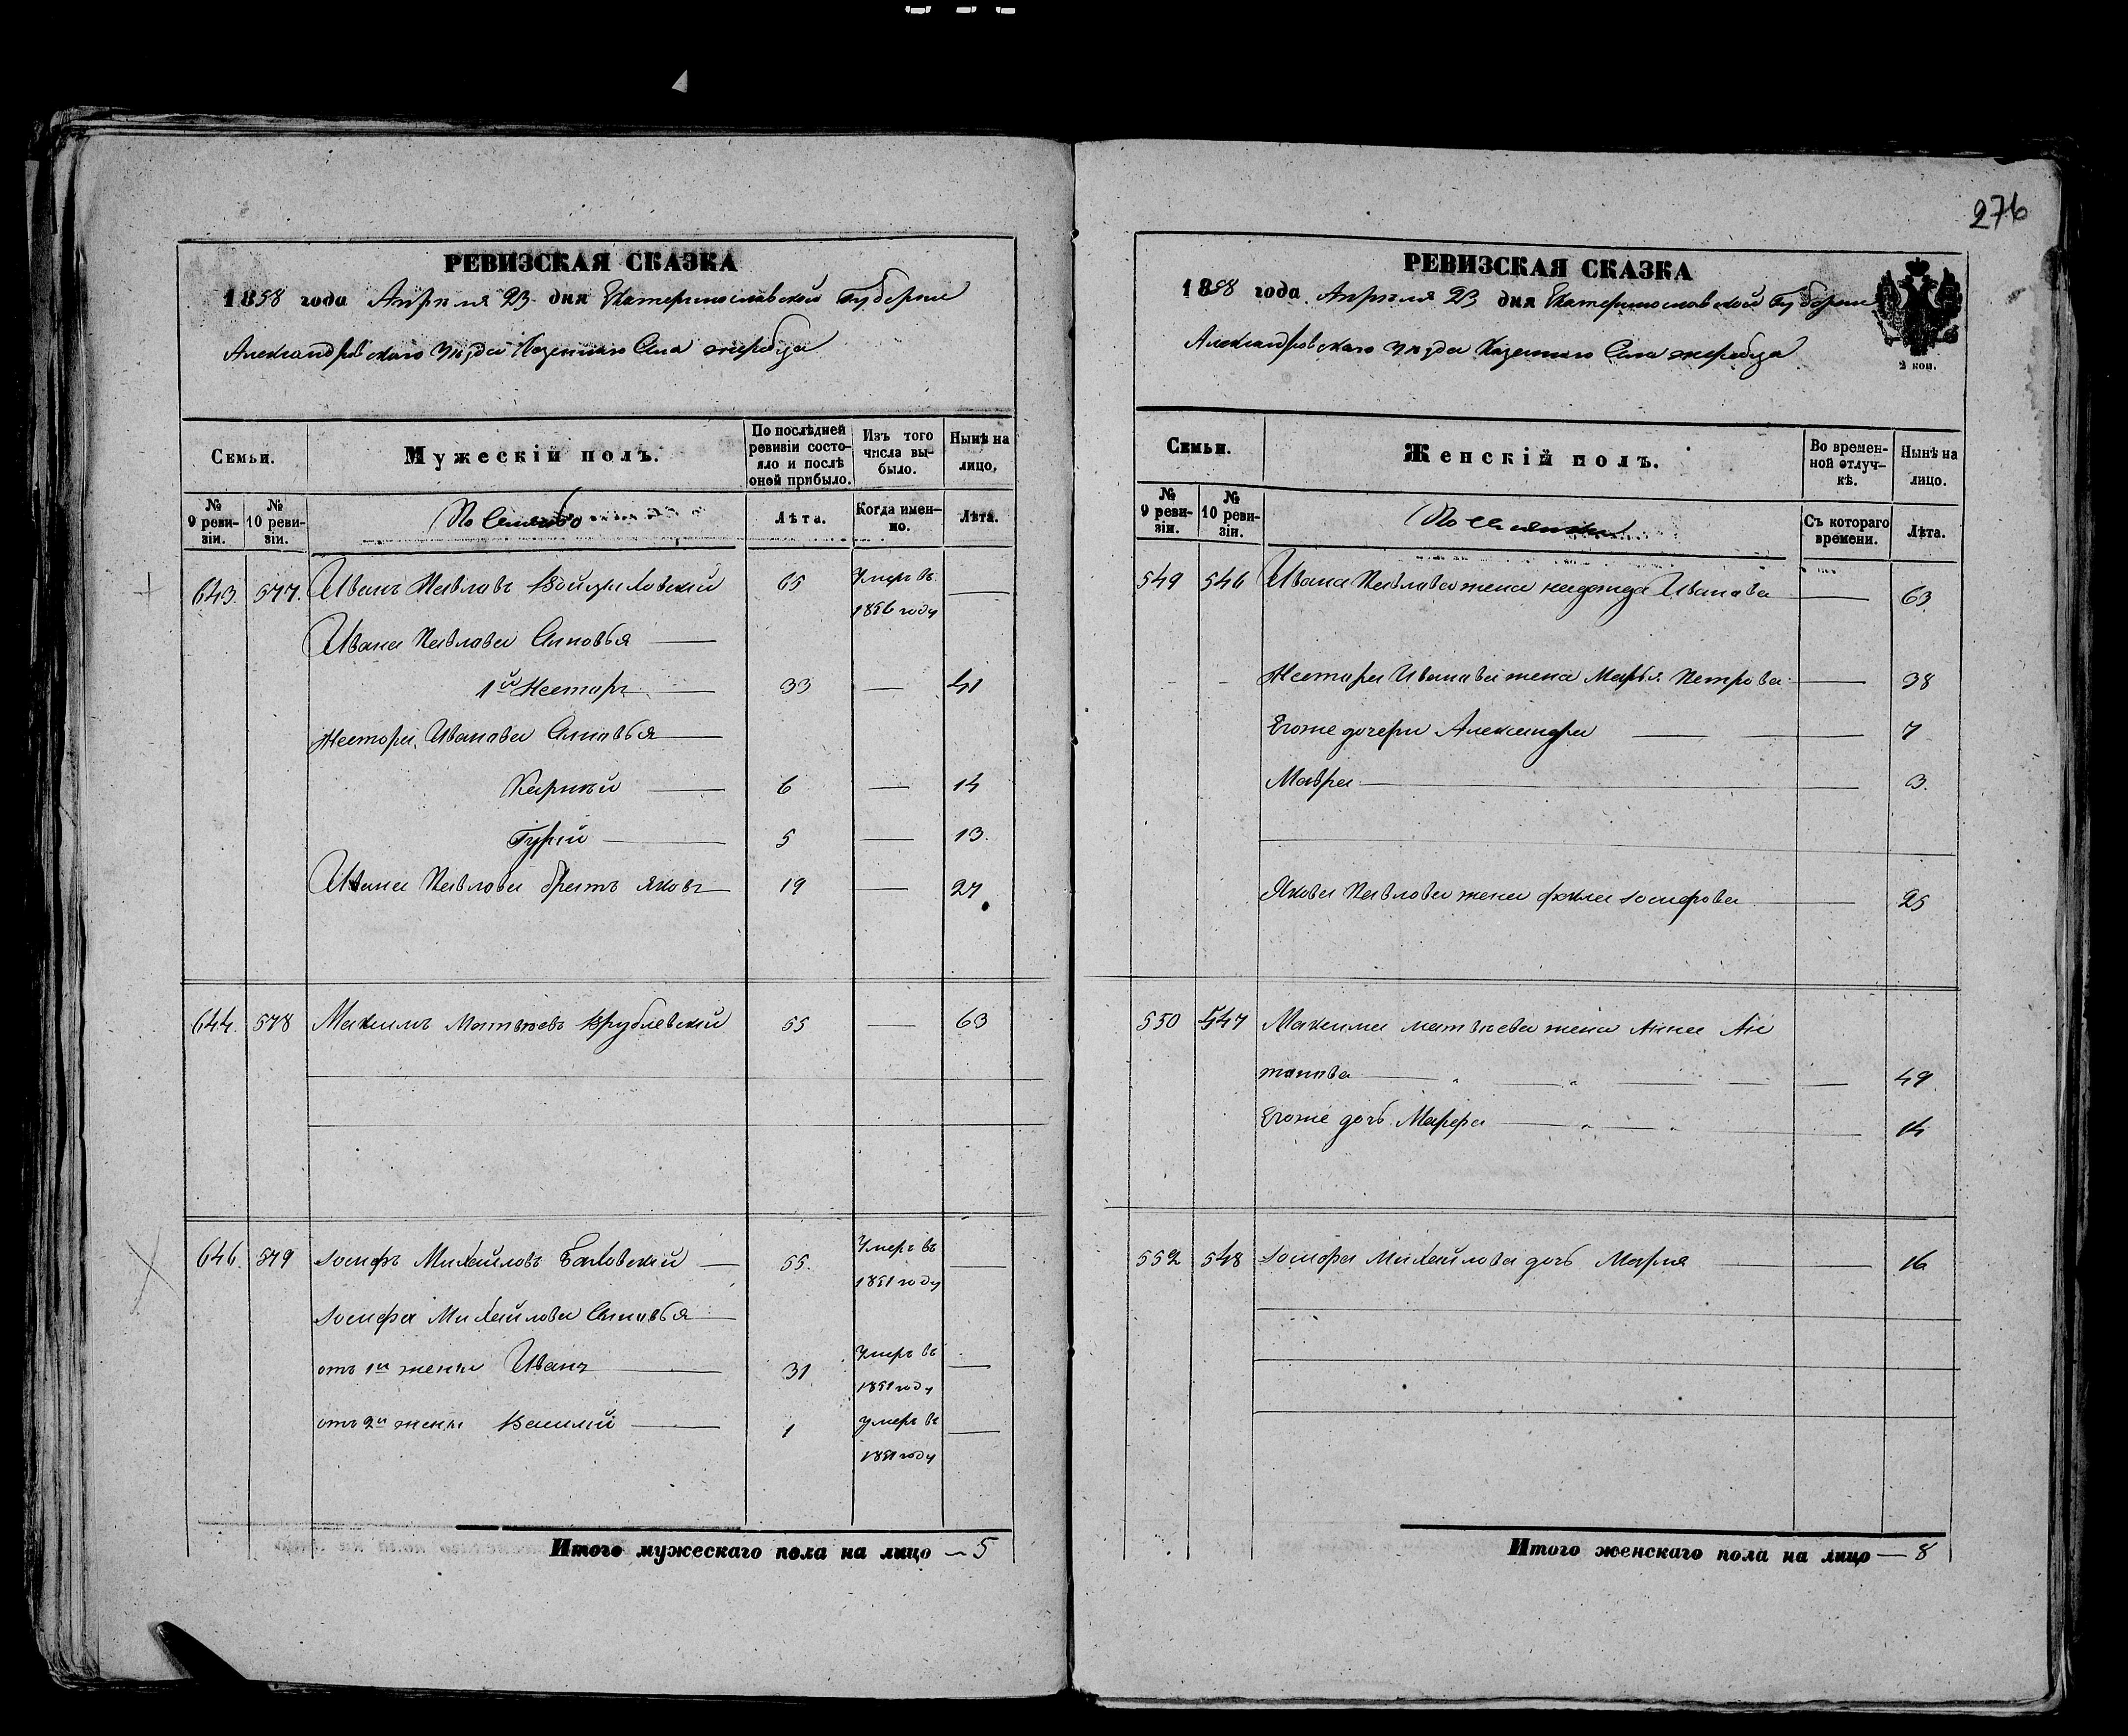 276
РЕВИЗСКАЯ СКАЗКА
1858 года Апреля 23 дня Екатеринославской Губернии
Александровскаго Уезда Казеннаго Села Жеребца
Семьи.
Мужескій полъ.
По послѣдней ревизіи состояло и послѣ оной прибыло.
Изъ того числа выбыло.
Нынѣ на лицо.
№ 9 ревизіи.
№ 10 ревизіи.
Лѣта.
Когда именно.
Лѣта.
643. 577. Иванъ Павловъ 65 Умеръ въ 1856 году
Ивана Павлова Сыновья
1й Несторъ 33 — 41
Нестора Иванова Сыновья
Карпъй 6 — 14
Гурій 5 — 13.
Ивана Павлова братъ Яковъ 19 — 27
644. 578 Максимъ Матвѣевъ Врублевскій 55 — 63
646. 579 Іосифъ Михайловъ 55. Умеръ въ 1851 году
Іосифа Михайлова Сыновья
отъ 1й жены Иванъ 31 Умеръ въ 1851 году
отъ 2й жены Василій 1 умеръ въ 1851 году
Итого мужескаго пола на лицо — 5
РЕВИЗСКАЯ СКАЗКА
1858 года Апреля 23 дня Екатеринославской Губернии
Александровскаго Уезда Казеннаго Села Жеребца
2 коп.
Семьи.
Женскій полъ.
Во временной отлучкѣ.
Нынѣ на лицо.
№ 9 ревизіи.
№ 10 ревизіи.
Съ котораго времени.
Лѣта.
549 546 Ивана Павлова жена Иванова — 63
Нестора Иванова жена Марья Петрова — 38
Егоже дочери Александра — 7
Мавра — 3.
Якова Павлова жена Фекла Іосифова — 25
550 547 Максима Матвѣева жена Анна Ан
тонова — 49
Егоже дочь Марфа — 14
552 548 Іосифа Михайлова дочь Марія — 16
Итого женскаго пола на лицо — 8